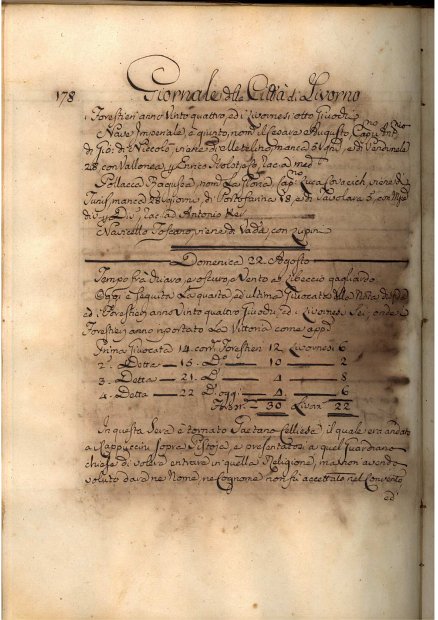 178 Giornale della Città di Livorno
Forestieri anno vinto quattro, ed i Livornesi otto Giuochi
Nave Imperiale, è giunto, nom. il Cesare Augusto, Cap.no
di Gio. di Niccolò, viene di manca 5 Ugni, e di
28 con Vallonea, ac a med.
Pollacca Ragusea, nom. La Diana, Cap.no Luca Covacich, viene di
Tunis manca 22 giorni, di Portofarina 18, e di Tavolara 5, con
ac ad Antonio Rei
Navicello Toscano, viene di Vada, con
Domenica 22. Agosto
Tempo frà chiaro, e oscuro, e Vento a Libeccio gagliardo
Oggi è seguita La quarta, ed ultima Giuocata della
ed i Forestieri anno vinto quattro Giuochi, ed i Livornesi Sei, onde i
Forestieri anno riportato La Vittoria come app.e
Prima Giuocata 14. corr. Forestieri 12 Livornesi 6
2. Detta 15. D.o 10 2
3. Detta 21. D.o 4 8
4. Detta 22 D.o oggi 4 6
Forest. 30 Livor. 22
In questa Sera è tornato Gaetano il quale era andato
a Cappuccini sopra Pistoja, e presentatosi a quel Guardiano
chiese di volere entrare in quella Religione, ma non avendo
voluto dare ne Nome, ne Cognome non fù accettato nel Convento
ed